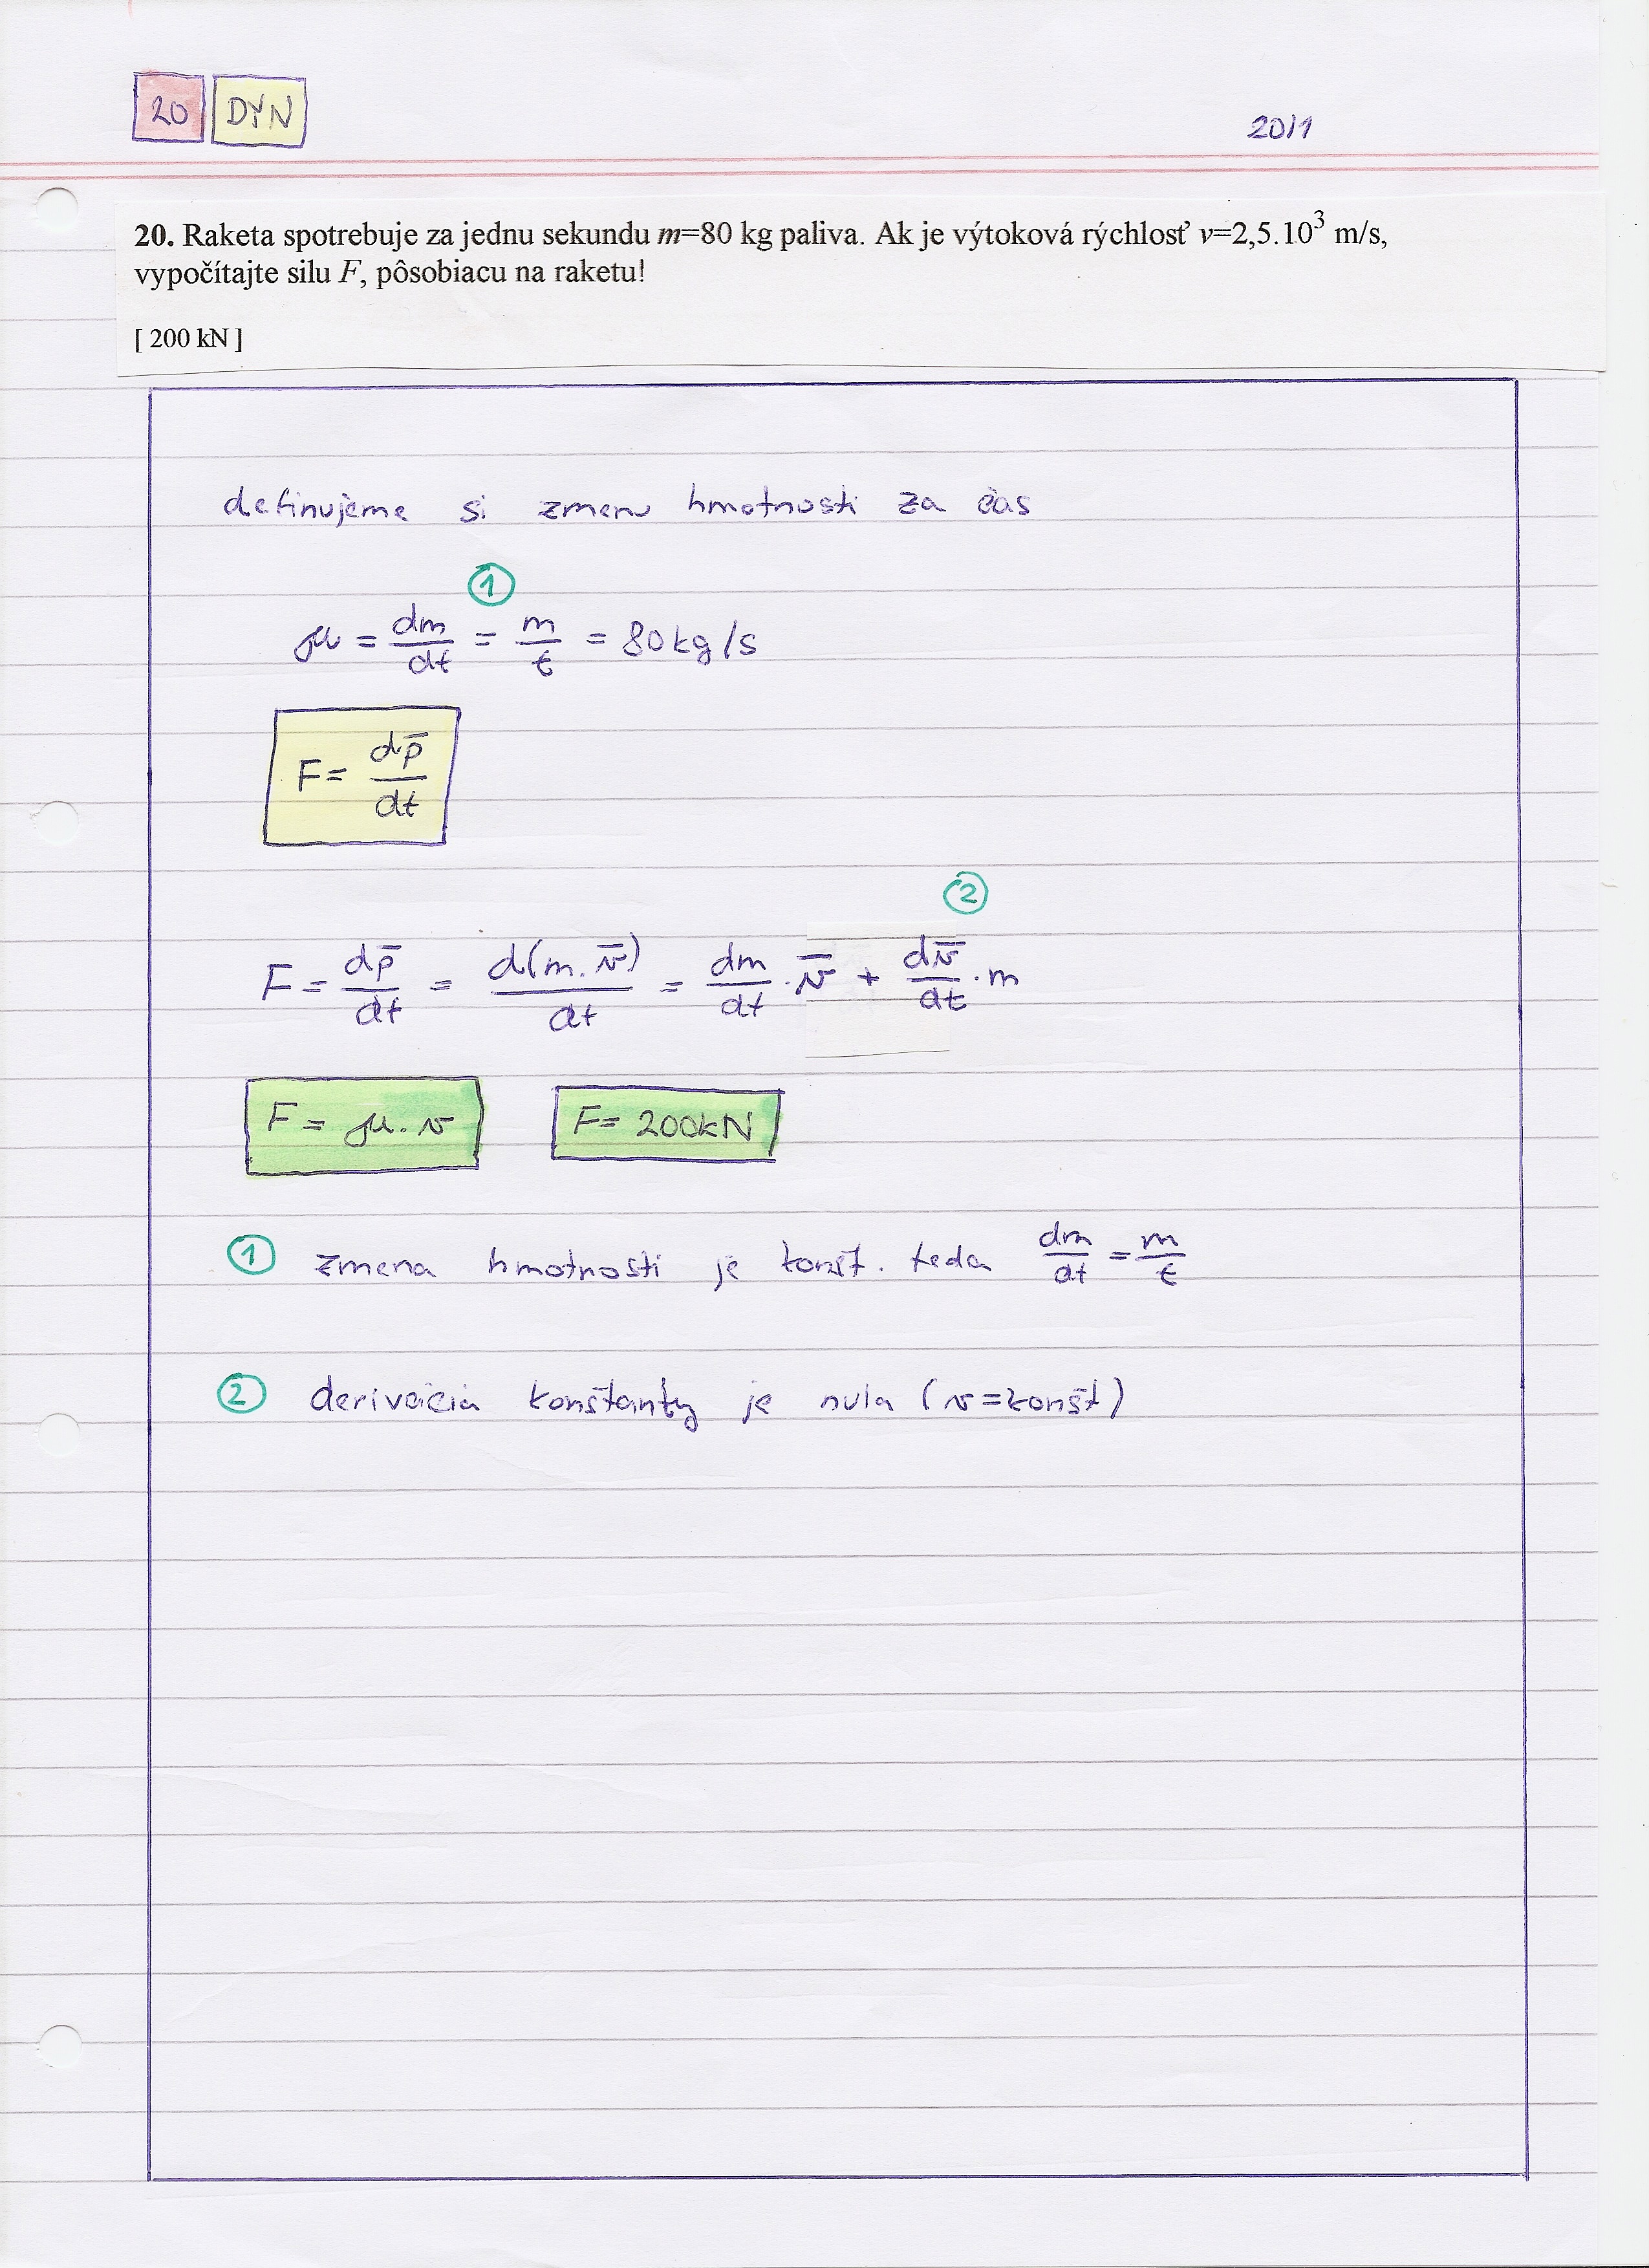 20 DYN
20/1
20. Raketa spotrebuje za jednu sekundu m=80 kg paliva. Ak je výtoková rýchlosť v=2,5.10³ m/s,
vypočítajte silu F, pôsobiacu na raketu!
[ 200 kN ]
definujeme si zmenu hmotnosti za čas
①
μ = dm/dt = m/t = 80kg/s
F = dp̄/dt
②
F = dp̄/dt = d(m.v̄)/dt = dm/dt . v̄ + dv̄/dt . m
F = μ. v F= 200kN
① zmena hmotnosti je konšt. teda dm/dt = m/t
② derivácia konštanty je nula (v=konšt)